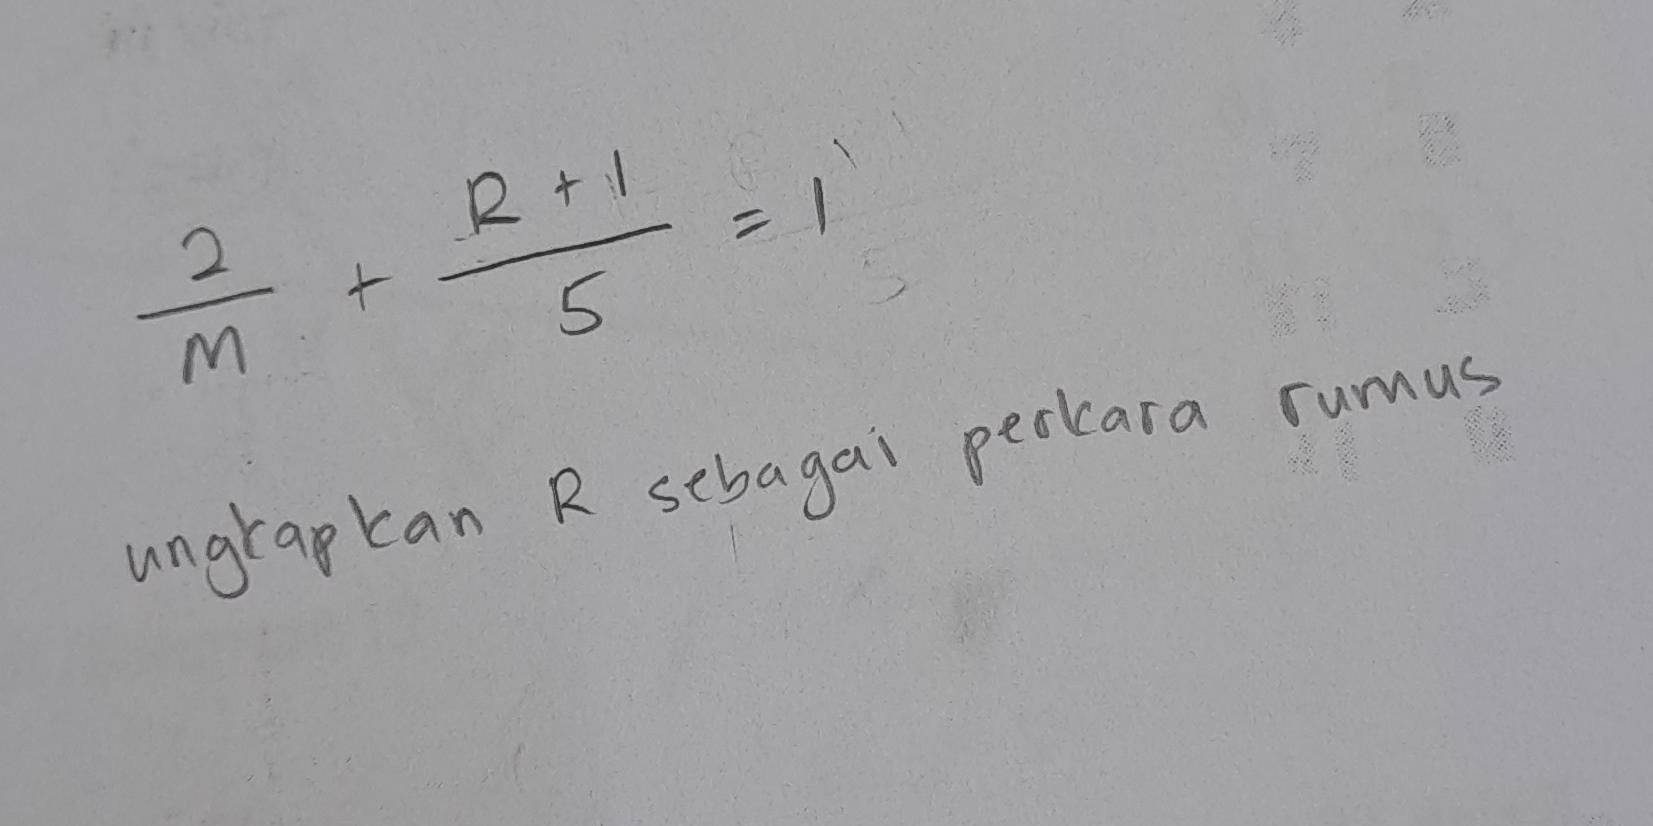 2/M + (R + 1)/5 = 1
ungkapkan R sebagai perkara rumus